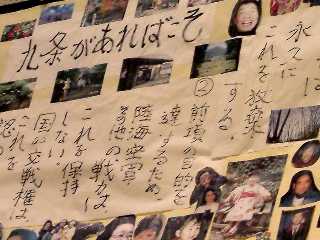 九条があればこそ
は
永久に
これを放棄
する。
②前項の目的を
達するため、
陸海空軍
その他の戦力は、
これを保持
しない。
国の交戦権は、
これを
認め